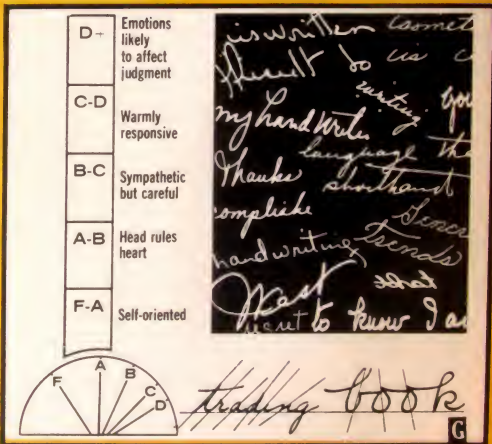 D+
Emotions
likely
to affect
judgment
C-D
Warmly
responsive
B-C
Sympathetic
but careful
A-B
Head rules
heart
F-A
Self-oriented
F A B C D
is written
is
to
writing you
my handwriting
language the
Thanks shorthand
handwriting
Trends
West
that
to know I a
trading book
G